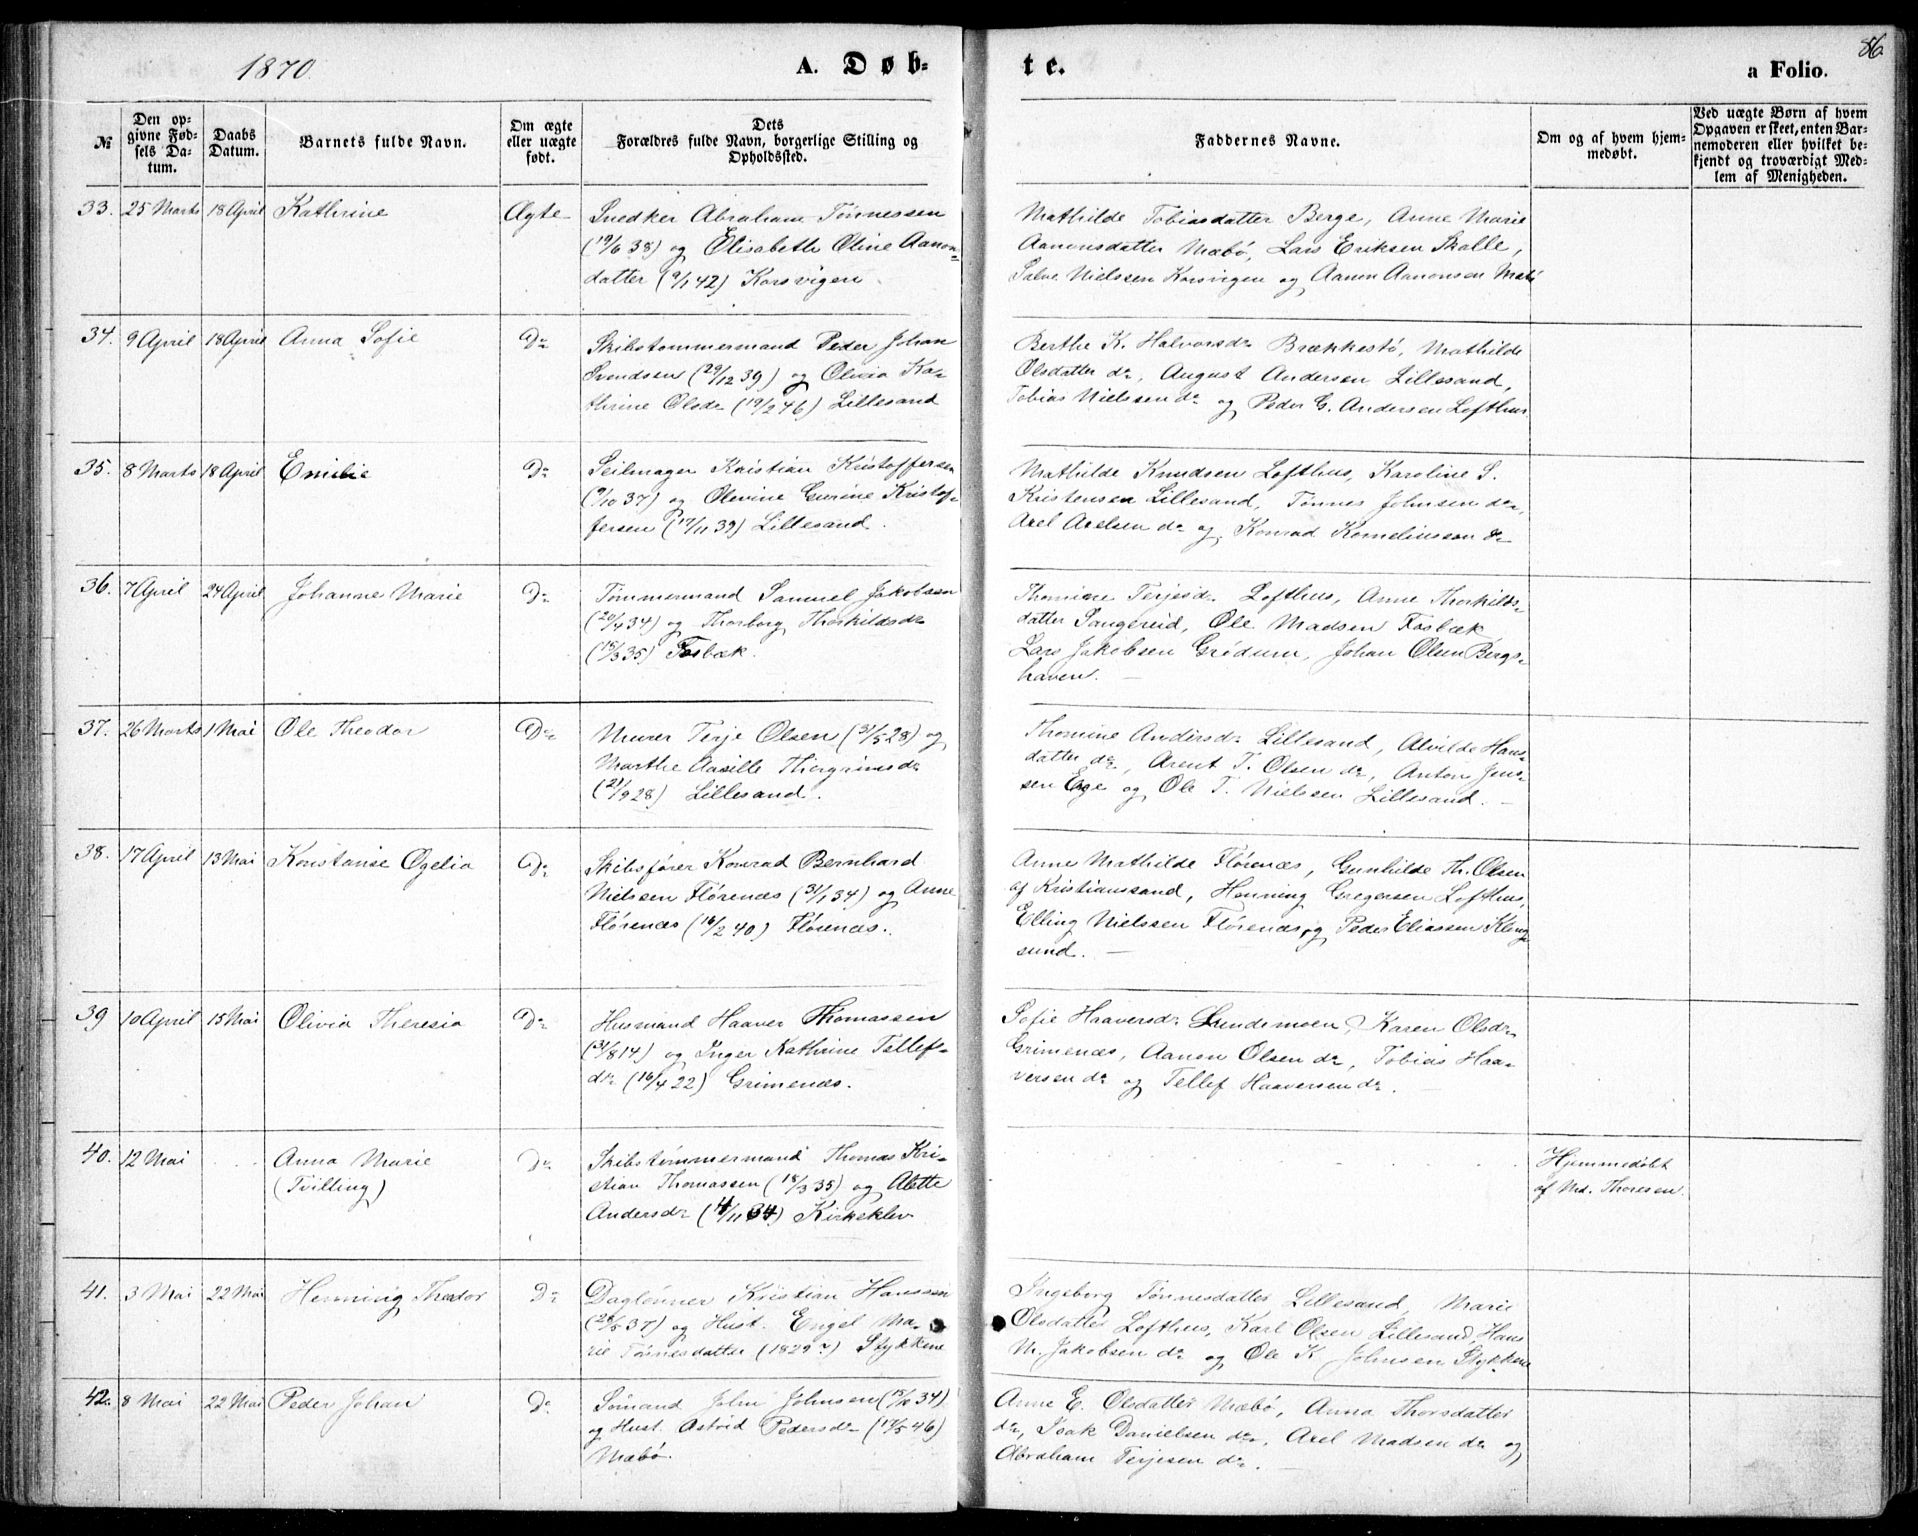 1870.
A. Døb-
te.
86.
a Folio.
№
Den op-
givne Fød-
sels Da-
tum.
Daabs
Datum.
Barnets fulde Navn.
Om ægte
eller uægte
født.
Dets
Forældres fulde Navn, borgerlige Stilling og
Opholdssted.
Faddernes Navne.
Om og af hvem hjem-
medøbt.
Ved uægte Børn af hvem
Opgaven er skeet, enten Bar-
nemoderen eller hvilket be-
kjendt og troværdigt Med-
lem af Menigheden.
33. 25 Marts 18 April Kathrine Ægte
Snedker Abraham Tønnessen
(19/6 38) og Elisabeth Oline Aanon-
datter (9/1 42) Korsvigen
Mathilde Tobiasdatter Berge, Anne Marie
Aanonsdatter Mæbø, Lars Eriksen Skalle,
Salve Nielssen Korsvigen og Aanon Aanonsen
34. 9 April 18 April Anna Sofie Do
Skibstømmermand Peder Johan
Svendsen (29/12 39) og Olivia Ka-
thrine Olsdr (19/2 46) Lillesand
Berthe K. Halvorsdr Brækkestø, Mathilde
Olsdatter do, August Andersen Lillesand,
Tobias Nielssen do og Peder G. Andersen Lofthus
35. 8 Marts 18 April Emilie Do
Seilmager Kristian Kristoffersen
(9/10 37) og Olevine Gurine Kristof-
fersen (17/11 39) Lillesand.
Mathilde Knudsen Lofthus, Karoline S.
Kristensen Lillesand, Tønnes Johnsen do,
Axel Axelsen do og Konrad Korneliussen do
36. 7 April 24 April Johanne Marie Do
Tømmermand Samuel Jakobsen
(20/4 34) og Thorborg Thorkildsdr
(15/3 35) Fosbæk.
Thomine Terjesdr Lofthus, Anne Thorkilds-
datter Sangereid, Ole Madsen Fosbæk
Lars Jakobsen Grødum, Johan Olsen Bergs-
haven.
37. 26 Marts 1 Mai Ole Theodor Do
Murer Terje Olsen (31/5 28) og
Marthe Aasille Thorgrimsdr
(21/9 28) Lillesand.
Thomine Andersdr Lillesand, Alvilde Hans-
datter do, Arent T. Olsen do, Anton Jens-
sen Ege og Ole T. Nielssen Lillesand.
38. 17 April 13 Mai Konstanse Ogelia Do
Skibsfører Konrad Bernhard
Nielssen Flørenæs (31/1 34) og Anne
Flørenæs (16/2 40) Flørenæs.
Anne Mathilde Flørenæs, Gunhilde Th. Olsen
af Kristianssand, Henning Gregersen Lofthus,
Elling Nielssen Flørenæs, og Peder Eliassen Kloug-
sund.
39 10 April 15 Mai Olivia Theresia Do
Husmand Haaver Thomassen
(31/8 14) og Inger Kathrine Tellefs-
dr (16/4 22) Grimenæs.
Sofie Haaversdr Lundemoen, Karen Olsdr
Grimenæs, Aanon Olsen do, Tobias Haa-
versen do og Tellef Haaversen do.
40. 12 Mai Anna Marie Do
(Tvilling)
Skibstømmermand Thomas Kri-
stian Thomassen (18/3 35) og Alette
Andersdr (14/11 34) Kirkeklev
Hjemmedøbt
af Md. Thoresen.
41. 3 Mai 22 Mai Henning Theodor Do
Dagløner Kristian Hanssen
(28/5 37) og Hust. Engel Ma-
rie Tønnesdatter (1829?) Stykkene
Ingeborg Tønnesdatter Lillesand, Marie
Olsdatter Lofthus, Karl Olsen Lillesand, Hans
M. Jakobsen do og Ole K. Johnsen Stykkene
42. 8 Mai 22 Mai Peder Johan Do
Sømand John Johnsen (15/10 34)
og Hust. Astrid Pedersdr (17/5 46)
Mæbø.
Anne E. Olsdatter Mæbø, Anna Thorsdatter
do, Isak Danielsen do, Axel Madsen do og
Abraham Terjesen do.